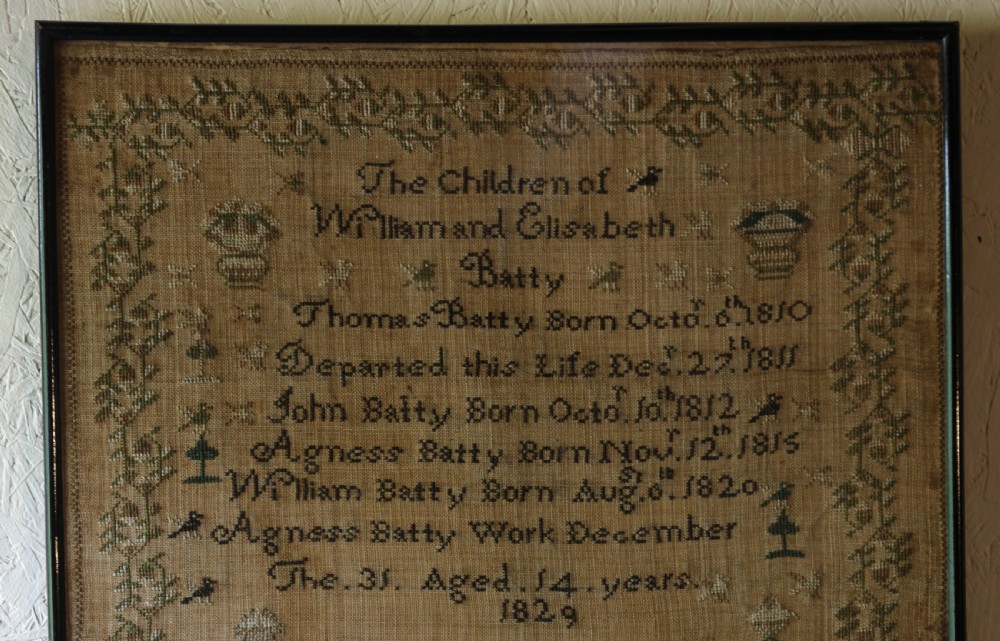 The Children of
William and Elisabeth
Batty
Thomas Batty Born Octo.r 6.th 1810
Departed this Life Dec.r 27.th 1811
John Batty Born Octo.r 10.th 1812
Agness Batty Born Nov.r 12.th 1815
William Batty Born Aug.st 6.th 1820
Agness Batty Work December
The . 31 . Aged . 14 . years .
1829